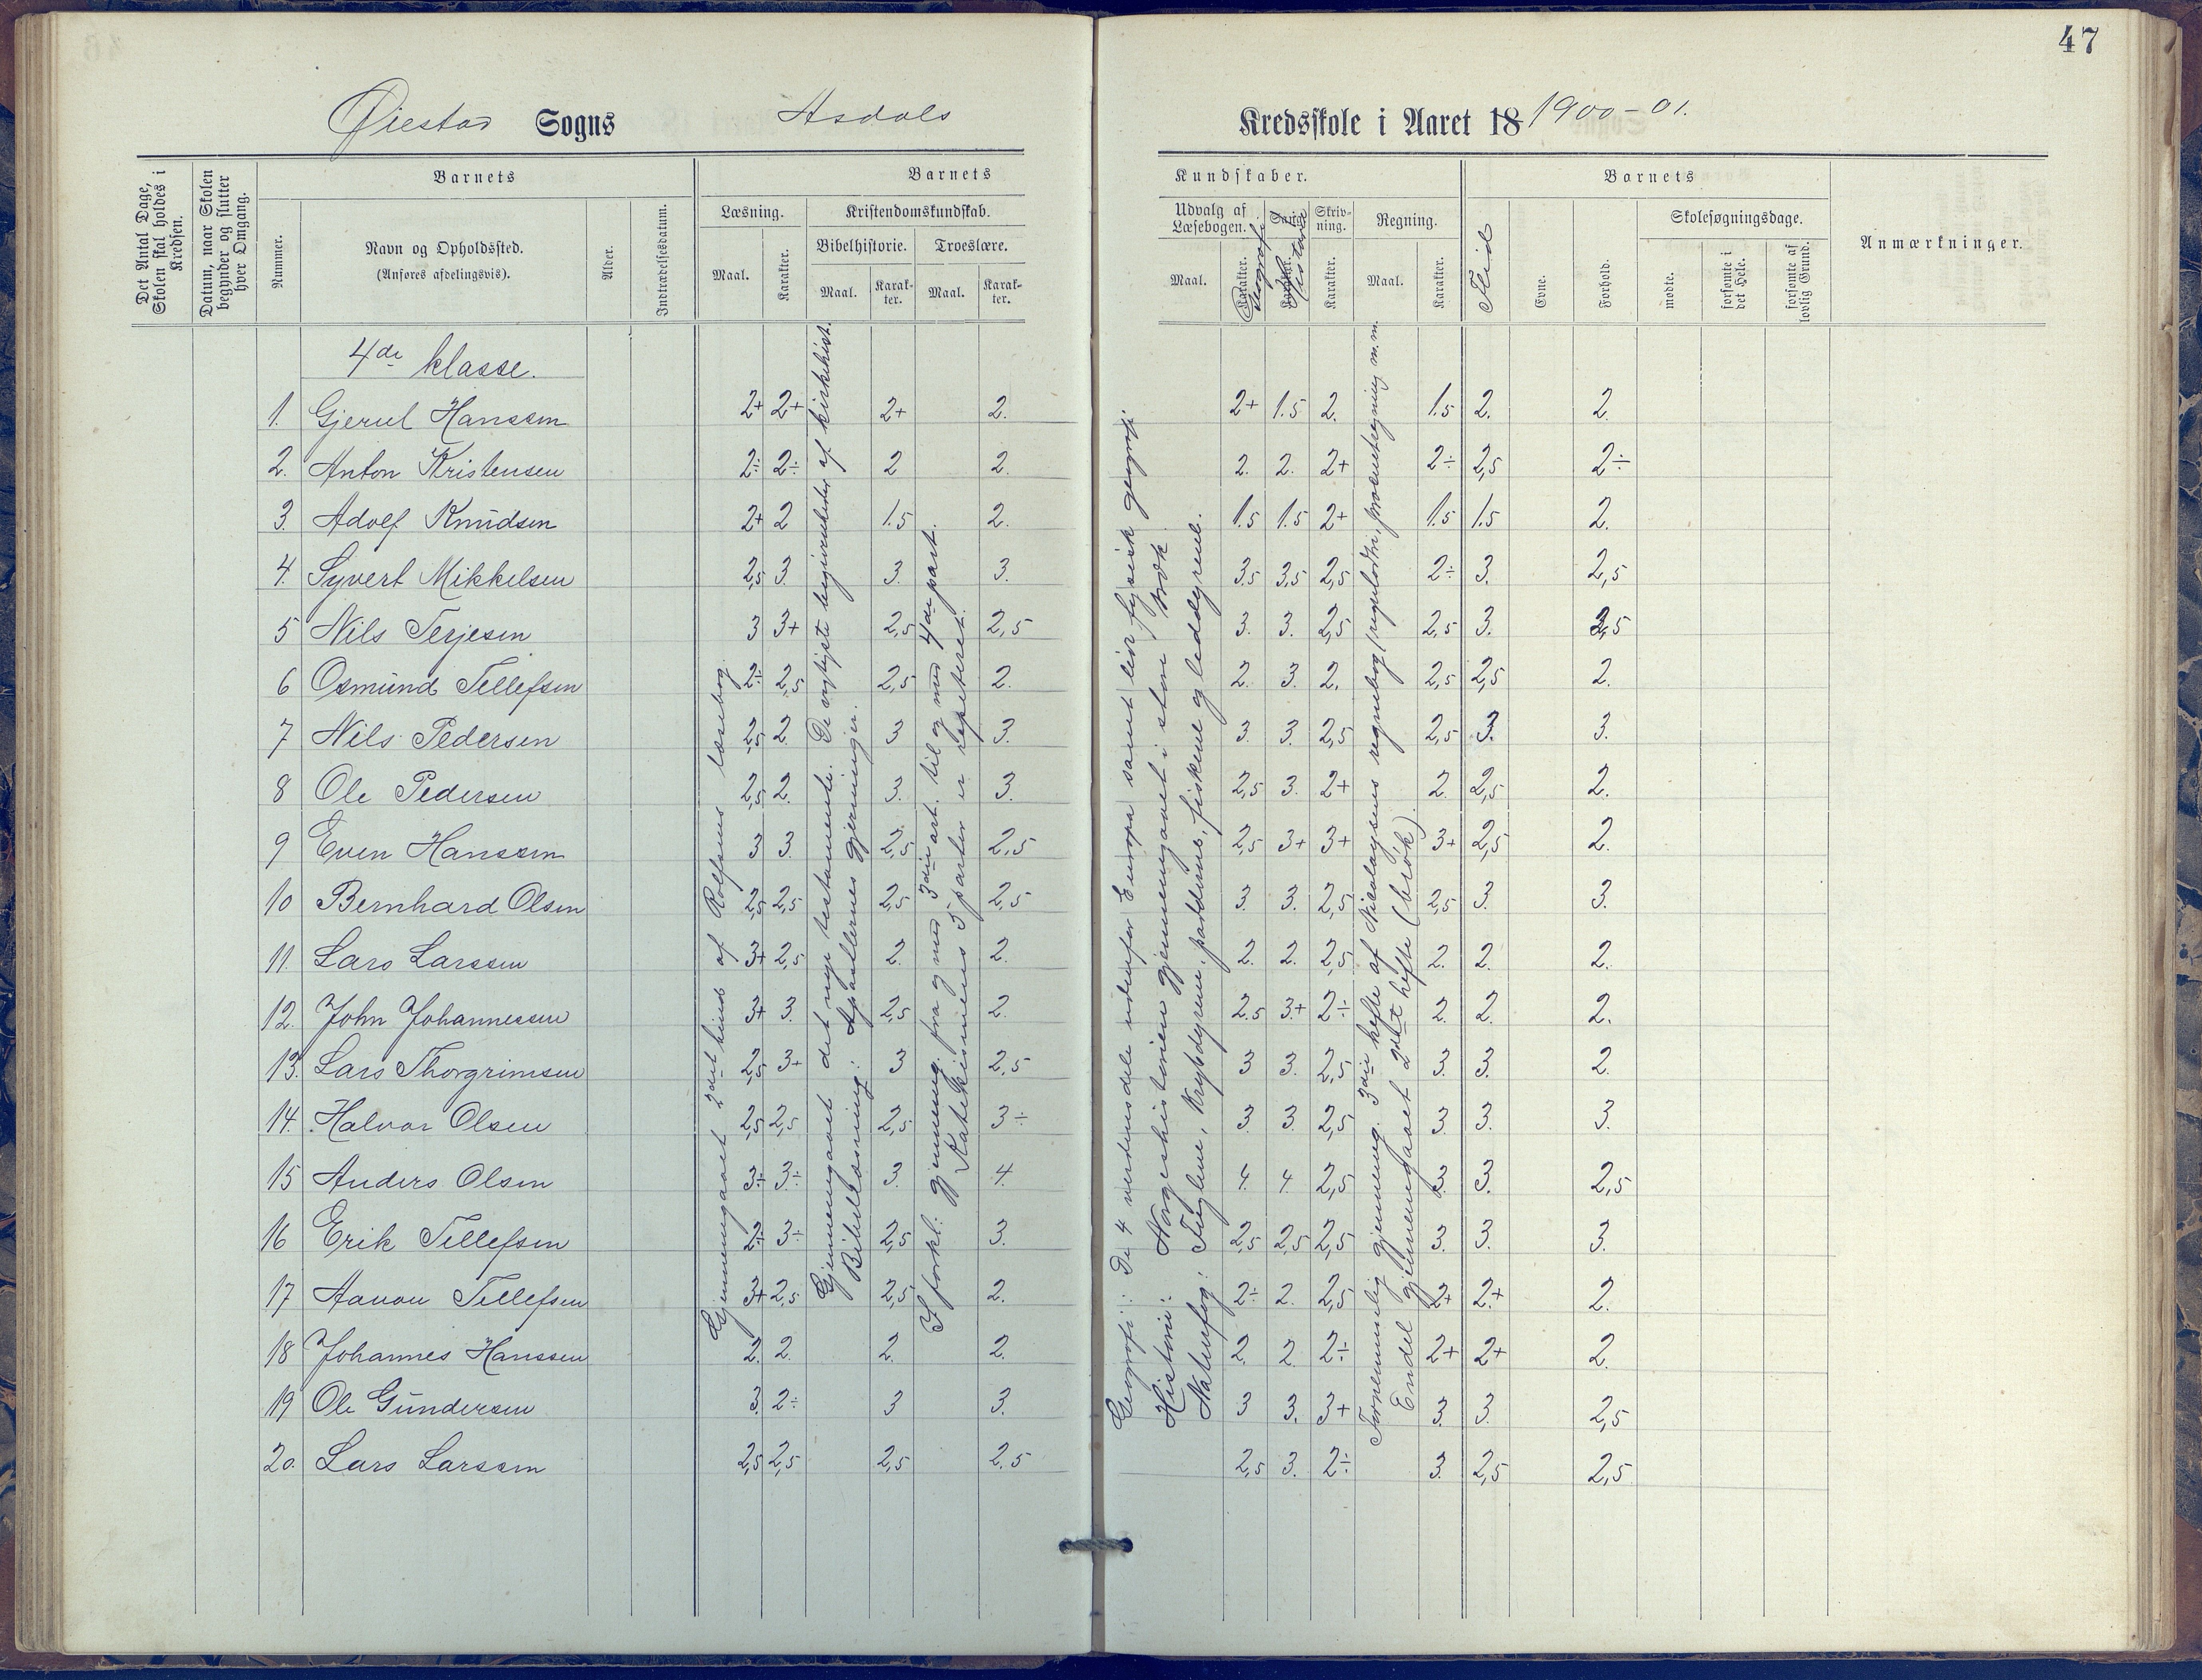 47
Øiestad Sogns Asdals Kredsskole i Aaret 18 1900-01.
Det Antal Dage, Skolen skal holdes i Kredsen.
Datum, naar Skolen begynder og slutter hver Omgang.
Barnets
Nummer.
Navn og Opholdssted.
(Anføres afdelingsvis).
Alder.
Indtrædelsesdatum.
Barnets Kundskaber.
Læsning.
Maal.
Karakter.
Kristendomskundskab.
Bibelhistorie.
Maal.
Karakter.
Troeslære.
Maal.
Karakter.
Udvalg af Læsebogen.
Maal.
Karakter.
Geografi.
Sang.
Karakter.
Historie
Skrivning.
Karakter.
Regning.
Maal.
Karakter.
Barnets
Flid
Evne.
Forhold.
Skolesøgningsdage.
mødte.
forsømte i det Hele.
forsømte af lovlig Grund.
Anmærkninger.
4de klasse.
1. Gjerul Hanssen 2+ 2+ 2+ 2. 2+ 1.5 2. 1.5 2. 2.
2. Anton Kristensen 2÷ 2÷ 2 2. 2. 2. 2+ 2÷ 2,5 2÷
3. Adolf Knudsen 2+ 2 1.5 2. 1.5 1.5 2+ 1.5 1.5 2.
4. Syvert Mikkelsen 2,5 3. 3. 3. 3.5 3,5 2,5 2÷ 3. 2,5
5 Nils Terjesen 3 3+ 2,5 2,5 3. 3. 2,5 2,5 3. 2,5
6 Osmund Tellefsen 2÷ 2,5 2,5 2. 2. 3. 2. 2,5 2,5 2.
7 Nils Pedersen 2,5 2. 3 3. 3. 3. 2,5 2,5 3. 3.
8 Ole Pedersen 2,5 2. 3. 3. 2,5 3. 2+ 2. 2,5 2.
9 Even Hanssen 3 3. 2,5 2,5 2,5 3+ 3+ 3+ 2,5 2.
10 Bernhard Olsen 2,5 2,5 2,5 2,5 3. 3. 2,5 2,5 3. 3.
11. Lars Larssen 3+ 2,5 2. 2. 2. 2. 2,5 2. 2. 2.
12. John Johannessen 3+ 3. 2,5 2. 2.5 3+ 2÷ 2. 2. 2.
13. Lars Thorgrimsen 2,5 3+ 3 2,5 3 3. 2,5 3. 3. 2.
14. Halvor Olsen 2,5 2,5 2,5 3÷ 3. 3. 2,5 3. 3. 3.
15 Anders Olsen 3÷ 3÷ 3. 4. 4. 4. 2,5 3. 3. 2,5
16 Erik Tellefsen 2÷ 3÷ 2,5 3. 2,5 2,5 2,5 3. 3. 3.
17 Aanon Tellefsen 3+ 2,5 2,5 2. 2÷ 2. 2,5 2+ 2+ 2.
18 Johannes Hanssen 2. 2. 2. 2. 2. 2 2÷ 2+ 2+ 2.
19 Ole Gundersen 3. 2÷ 3 3. 3 3. 3+ 3. 3. 2,5
20. Lars Larssen 2,5 2,5 2,5 2.5 2,5 3. 2÷ 3. 2,5 2,5
Gjennemgaaet 2det bind af Rolfsens læsebog.
Gjennemgaaet det nye testamente. De vigtigste begivenheder af kirkehist.
Bibellæsning: Apostlernes gjerninger.
I forkl: gjennemg. fra og med 3die art. til og med 4de part.
Katekismens 5 parter er repeteret.
Geografi: De 4 verdensdele udenfor Europa samt lidt fysisk geografi
Historie: Norgeshistorien gjennemgaaet i store træk
Naturfag: Fuglene, Krybdyrene, padderne, fiskene og leddyrene.
Fornemmelig gjennemg. 3die hefte af Nicolaysens regnebog (reguladetri, procentregning m.m.
Endel gjennemgaaet 2det hefte (brøk)